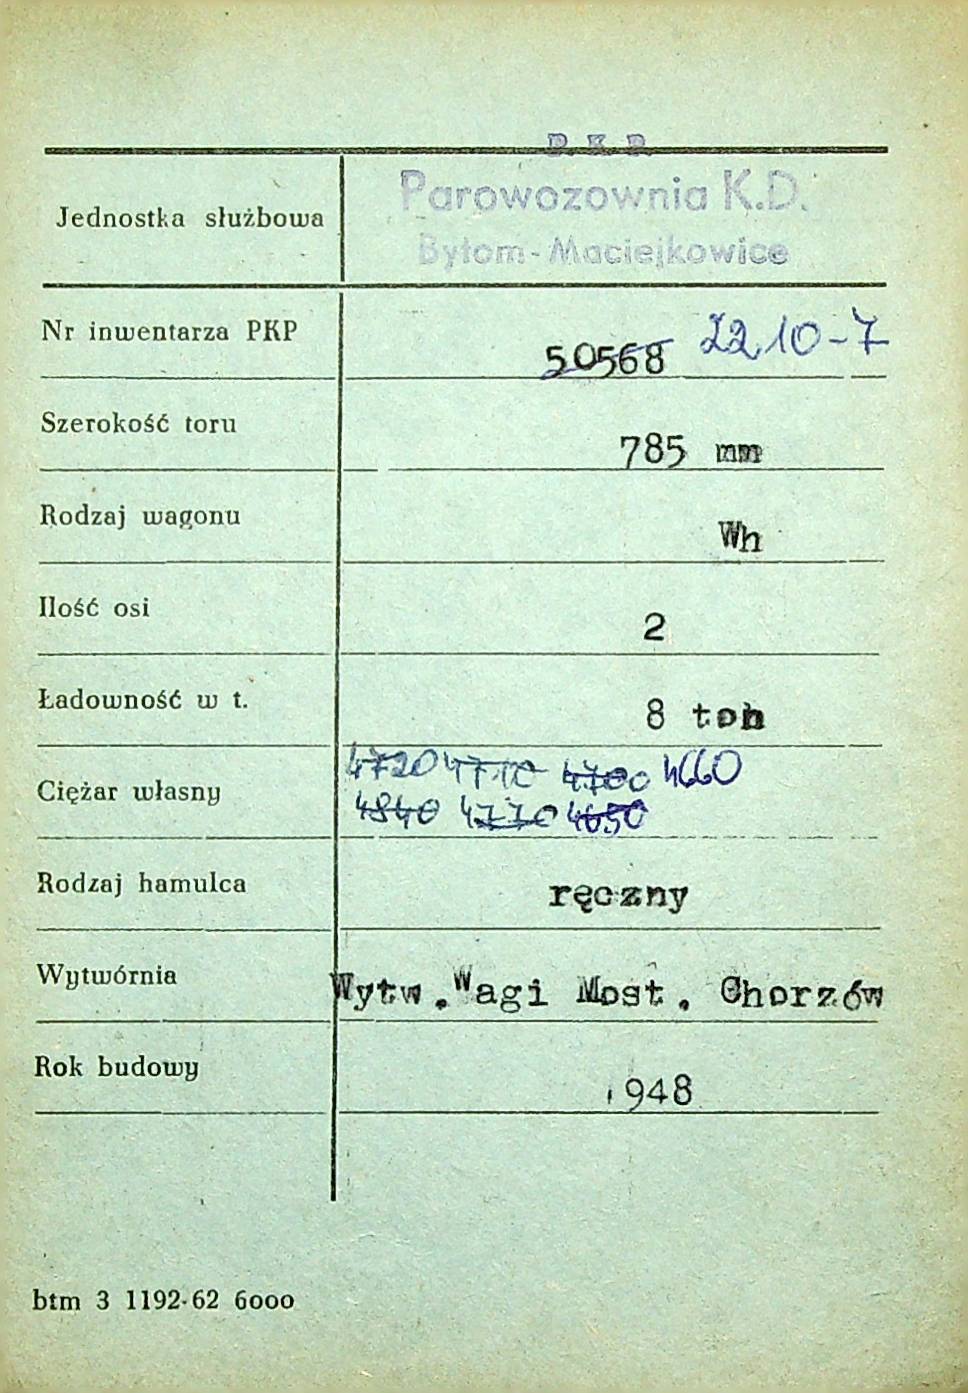 P. K. P.
Parowozownia K.D.
Bytom-Maciejkowice
Jednostka służbowa
Nr inwentarza PKP 50568 2210-7
Szerokość toru 785 mm
Rodzaj wagonu Wh
Ilość osi 2
Ładowność w t. 8 ton
4720 4710 4700 4660
Ciężar własny
4840 4770 4650
Rodzaj hamulca ręczny
Wytwórnia Wytw.Wagi Most. Chorzów
Rok budowy 1948
btm 3 1192-62 6000